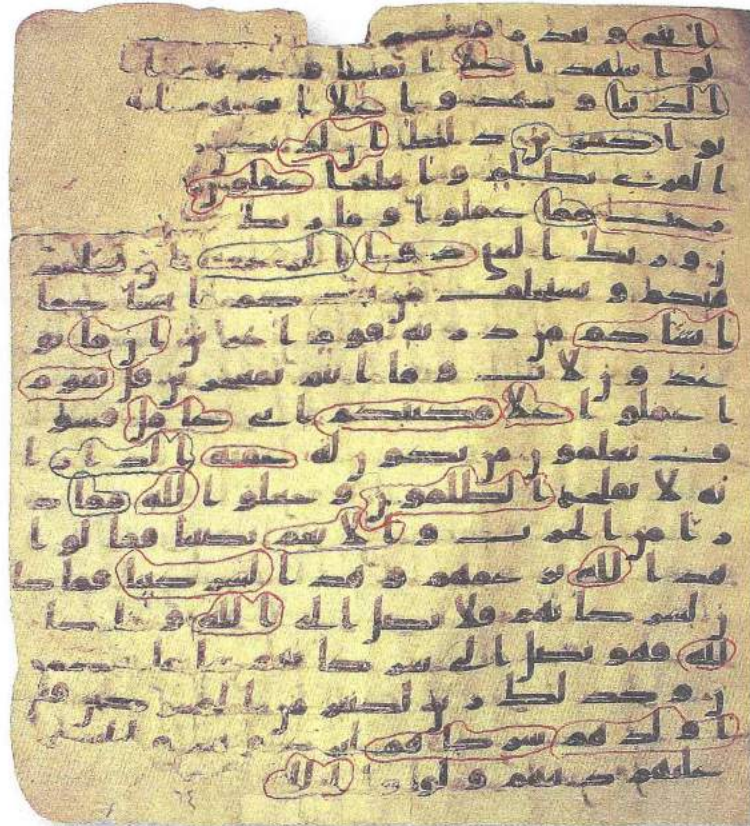 ايتي وينذرونكم
لوا شهدنا علا انفسنا وغرتهم ا
الدنيا وشهدوا علا انفسهم انه
نوا كفرين ذلك ان لم يكن
القرى بظلم واهلها غفلون
درجت مما عملوا وما ربك
ن وربك الغني ذوا الرحمة ان يشا يذهب
كم ويستخلف من بعدكم ما يشا كما
انشاكم من ذرية قوم اخرين ان ما تو
عدون لات وما انتم بمعجزين قل يقوم
اعملوا علا مكنتكم اني عامل فسو
ف تعلمون من تكون له عقبة الدار ا
نه لا يفلح الظلمون وجعلوا لله مما ذ
را من الحرث والانعم نصيبا فقالوا
هذا لله بزعمهم وهذا لشركينا فما كا
ن لشركائهم فلا يصل الى الله وما كا
لله فهو يصل الى شركائهم سا ما يحكمو
ن وكذلك زين لكثير من المشركين قتل
اولدهم شركاوهم ليردوهم وليلبسوا
عليهم دينهم ولو شا الله